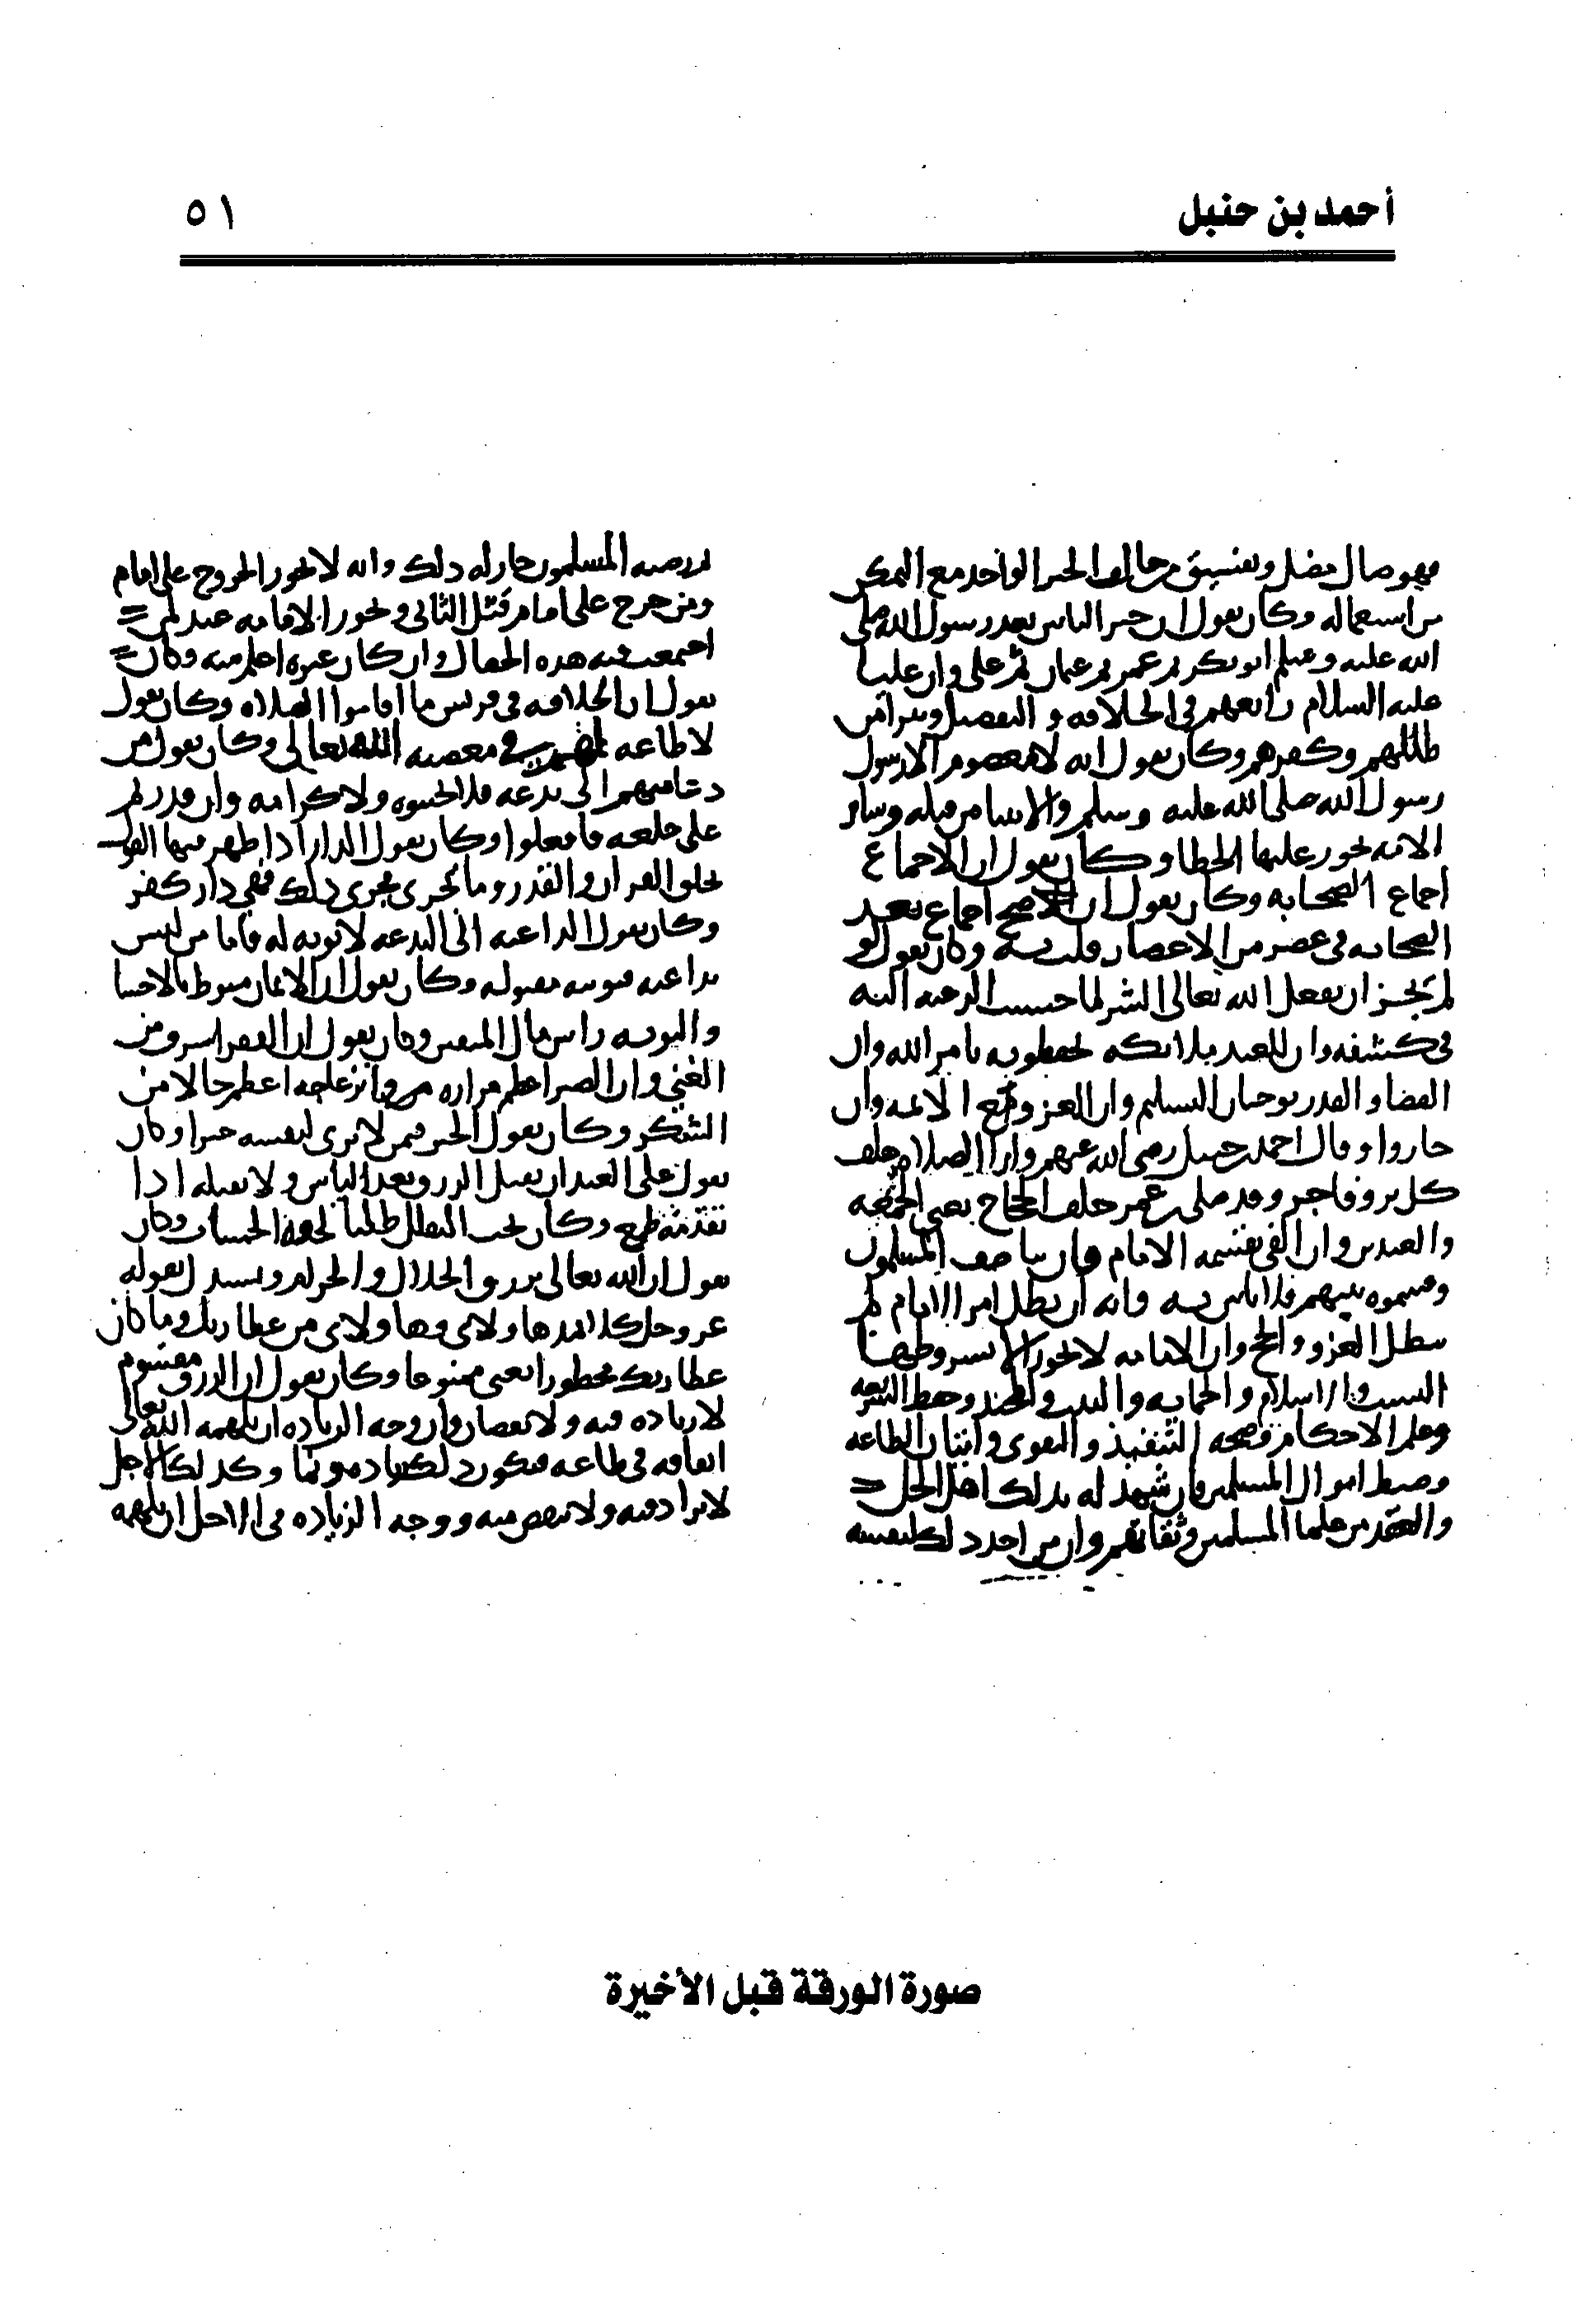 أحمد بن حنبل
٥١
فهو ضال مضل ويفسق من خالف الخبر الواحد مع التمكن
من استعماله وكان يقول ان خير الناس بعد رسول الله صلى
الله عليه وسلم ابو بكر ثم عمر ثم عثمان ثم علي وان عليا
عليه السلام رابعهم في الخلافة والتفضيل ويبرا من
ظللهم وكفرهم وكان يقول انه لا معصوم الا رسول
رسول الله صلى الله عليه وسلم والانبيا من قبله وساير
الامة يجوز عليها الخطا وكان يقول ان الاجماع
اجماع الصحابة وكان يقول ان صح اجماع بعد
الصحابة في عصر من الاعصار قلت به وكان يقول لو
لم يجز ان يفعل الله تعالى الشر لما حسنت الرغبة اليه
في كشفه وان للعبد ملائكة يحفظونه بامر الله وان
القضا والقدر يوجبان التسليم وان الغزو مع الائمة وان
جاروا وقال احمد بن حنبل رضي الله عنهم وان الصلاة خلف
كل بر وفاجر وقد صلى ابن عمر خلف الحجاج يعني الجمعة
والعيدين وان الفي يقسمه الامام فان تناصف المسلمون
وقسموه بينهم فلا باس به وانه ان بطل امر الامام لم
يبطل الغزو والحج وان الامامة لا تجوز الا بشروطها
النسب والاسلام والحماية والبيت والمحتد وحفظ الشريعة
وعلم الاحكام وصحة التنفيذ والتقوى واتيان الطاعة
وضبط اموال المسلمين فان شهد له بذلك اهل الحل
والعقد من علما المسلمين وثقاتهم وان من اخذ ذلك لنفسه
ثم رضيه المسلمون جاز له ذلك وانه لا يجوز الخروج على امام
ومن خرج على امام قتل الثاني وتجوز الامامة عند لمن
اجتمعت فيه هذه الخصال وان كان غيره اعلم منه وكان
يقول ان الخلافة في قريش ما اقاموا الصلاة وكان يقول
لا طاعة لهم في معصية الله تعالى وكان يقول من
دعا منهم الى بدعة فلا تجيبوه ولا كرامة وان قدرتم
على خلعه فافعلوا وكان يقول الدار اذا ظهر فيها القول
بخلق القران والقدر وما يجري مجرى ذلك فهي دار كفر
وكان يقول الداعية الى البدعة لا توبة له فاما من ليس
بداعية فتوبته مقبولة وكان يقول ان الايمان منوط بالاحسا
والتوبة راس مال المتقين وكان يقول ان الفقر اشرف من
الغني وان الصبر اعظم مرارة وانزعاجه اعظم حالا من
الشكر وكان يقول لا خير فيمن لا يرى لنفسه خيرا وكان
يقول على العبد ان يقبل الرزق بعد الياس ولا يقبله اذا
تقدمه طمع وكان يحب التقلل طلبا لخفة الحساب وكان
يقول ان الله تعالى يرزق الحلال والحرام ويستدل بقوله
عز وجل كلا نمد هاولاي وهاولاي من عطا ربك وما كان
عطا ربك محظورا يعني ممنوعا وكان يقول ان الرزق مقسوم
لا زيادة فيه ولا نقصان وان وجه الزيادة ان يلهمه الله تعالى
انفاقه في طاعة فيكون ذلك زيادة ونما وكذلك الاجل
لا يزاد فيه ولا ينقص منه ووجه الزيادة في الاجل ان يلهمه
صورة الورقة قبل الأخيرة